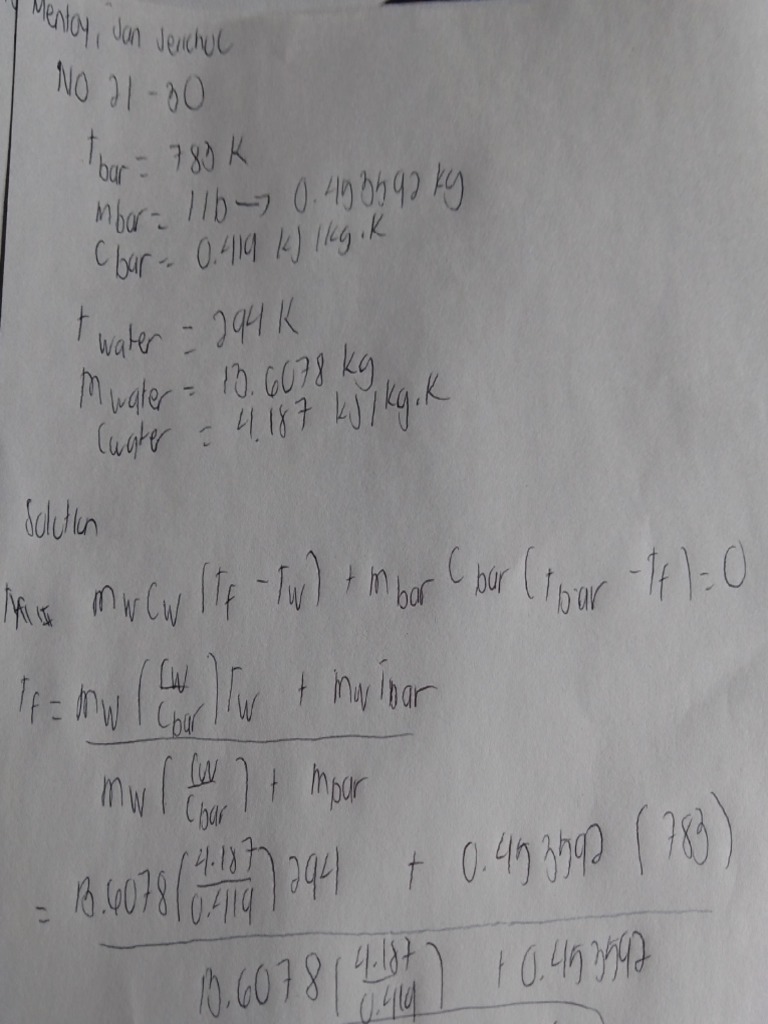 Mentoy, Jan Jerichol
NO 21-30
t bar = 783 K
m bar = 1 lb → 0.453592 kg
C bar = 0.419 kJ/kg.K
t water = 294 K
m water = 13.6078 kg
C water = 4.187 kJ/kg.K
Solution
mw Cw (Tf - Tw) + m bar C bar (t bar - Tf) = 0
Tf = mw (Cw/C bar) Tw + mw T bar
mw (Cw/C bar) + m bar
= 13.6078 (4.187/0.419) 294 + 0.453592 (783)
13.6078 (4.187/0.419) + 0.453592